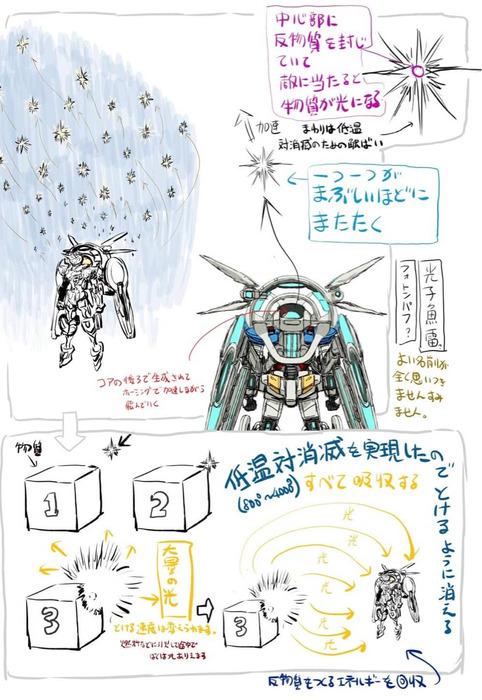 中心部に
反物質を封じ
ていて
敵に当たると
物質が光になる
加速
まわりは低温
対消滅のための
一つ一つが
まぶしいほどに
またたく
光子魚雷
フォトン
よい名前が
全く思いつき
ませんすみ
ません。
コアの後ろで生成されて
ホーミングで加速しながら
飛んでいく
物質
1
2
3
大量の光
とける速度は変えられます。
低温対消滅を実現したので
(800°~4000°)
すべて吸収する
とけるように消える
光
光
光
光
光
3
反物質をつくるエネルギーを回収